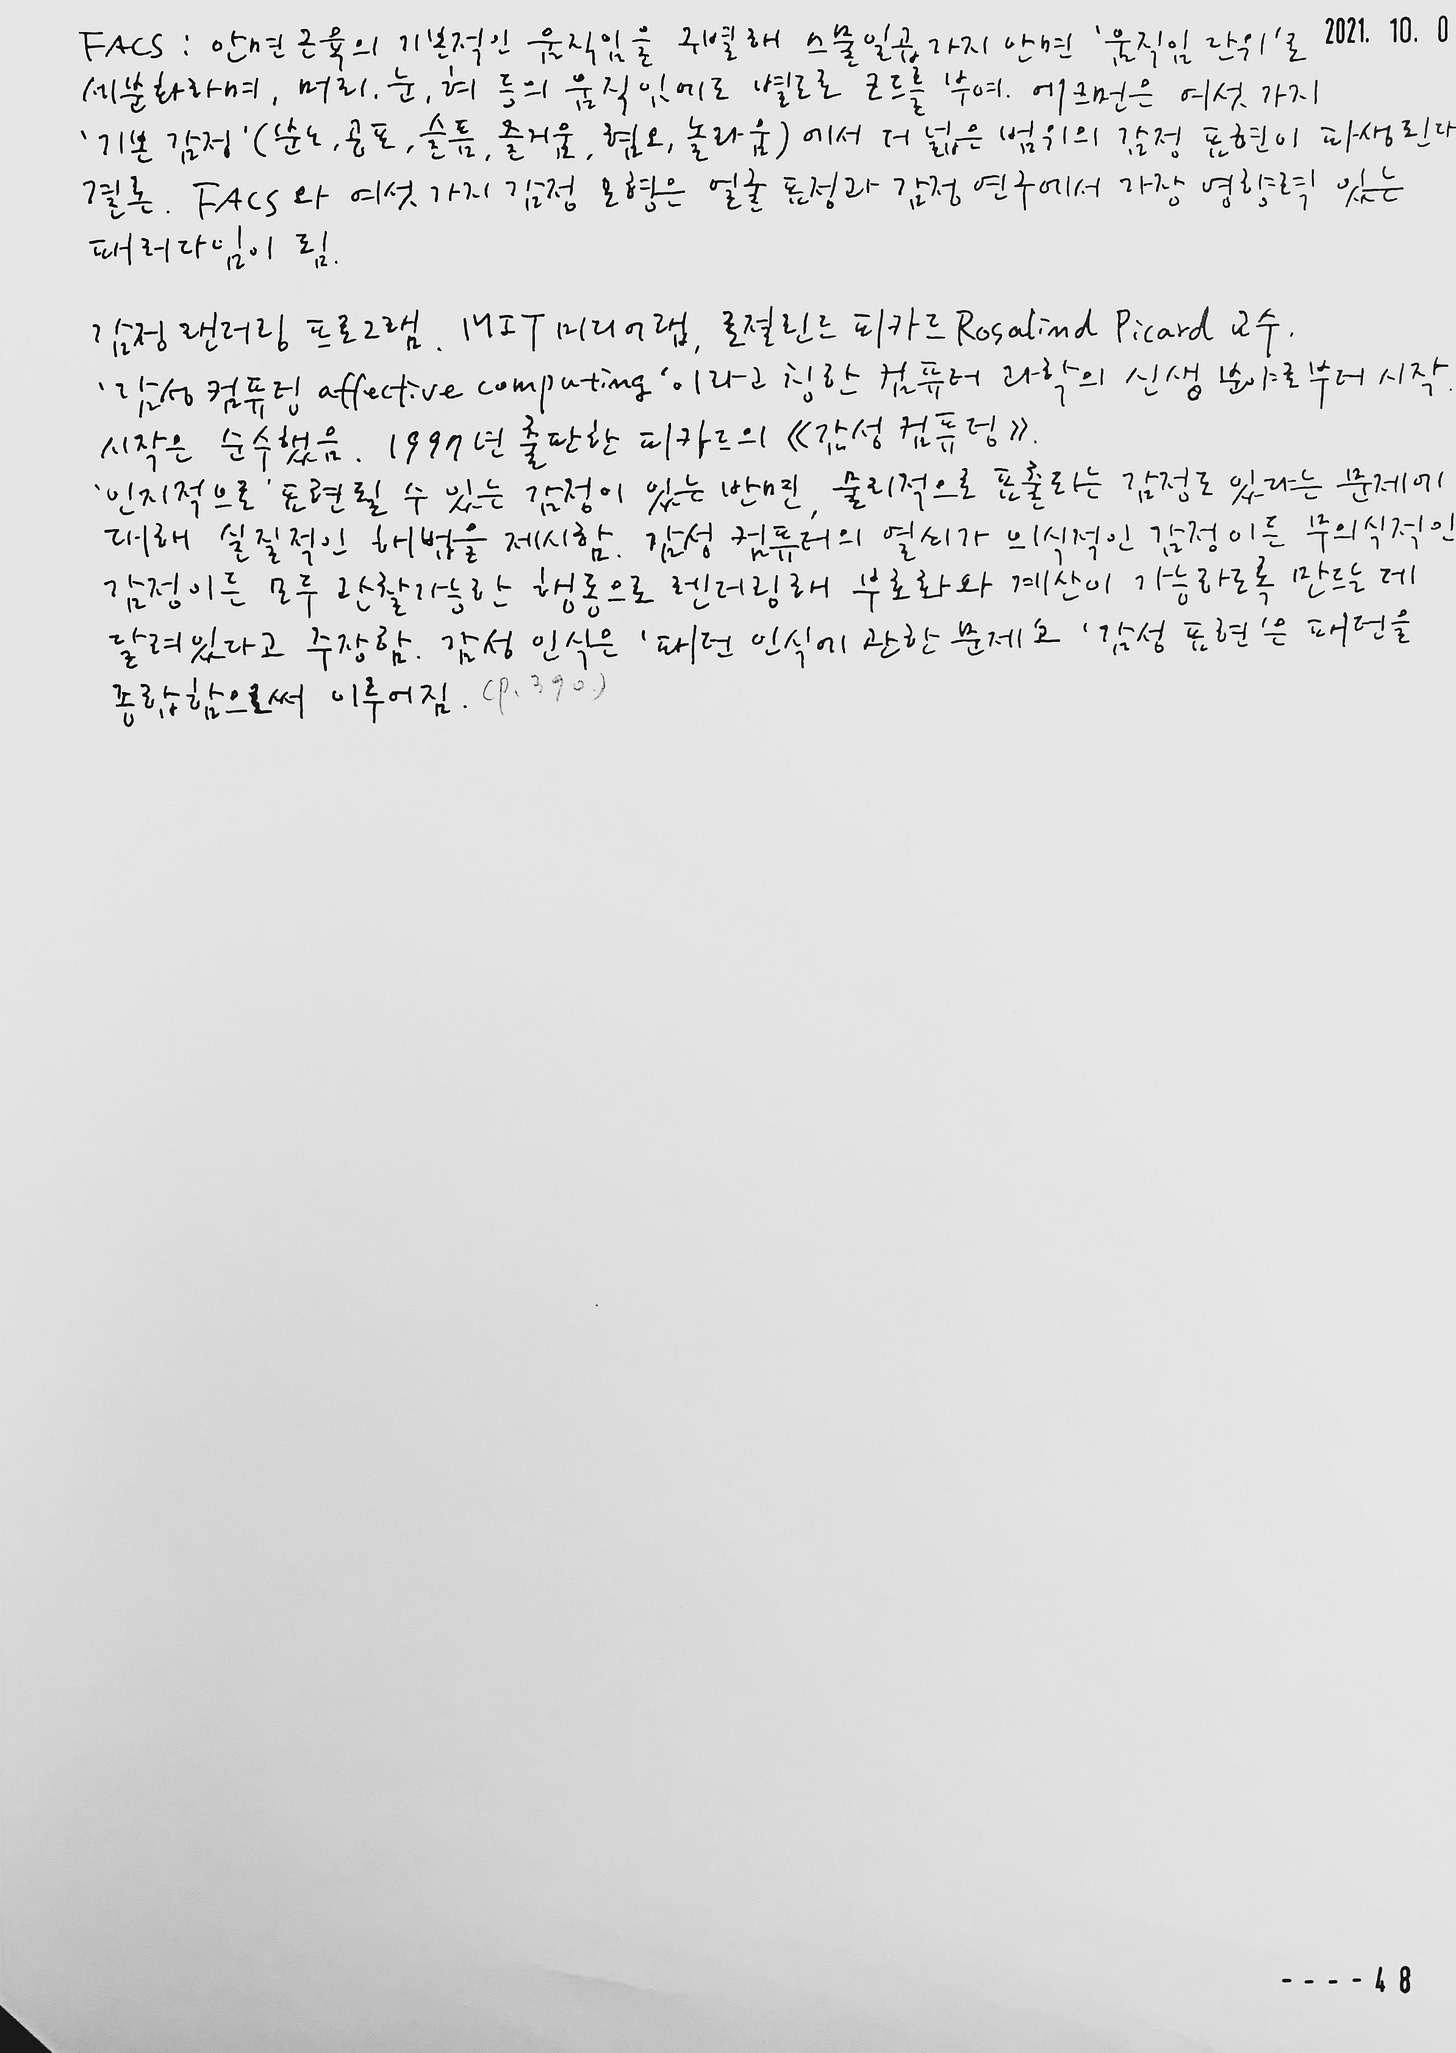 2021. 10. 0
FACS : 안면 근육의 기본적인 움직임을 구별해 스물일곱 가지 안면 '움직임 단위'로
세분화하며, 머리, 눈, 혀 등의 움직임에도 별도로 코드를 부여. 에크먼은 여섯 가지
'기본 감정'(분노, 공포, 슬픔, 즐거움, 혐오, 놀라움)에서 더 넓은 범위의 감정 표현이 파생된다
결론. FACS와 여섯 가지 감정 모형은 얼굴 표정과 감정 연구에서 가장 영향력 있는
패러다임이 됨.
감정 랜더링 프로그램. MIT 미디어랩, 로절린드 피카드 Rosalind Picard 교수.
'감성 컴퓨팅 affective computing'이라고 칭한 컴퓨터 과학의 신생 분야로부터 시작.
시작은 순수했음. 1997년 출판한 피카드의 《감성 컴퓨팅》.
'인지적으로' 표현될 수 있는 감정이 있는 반면, 물리적으로 표출하는 감정도 있다는 문제에
대해 실질적인 해법을 제시함. 감성 컴퓨터의 열쇠가 의식적인 감정이든 무의식적인
감정이든 모두 관찰가능한 행동으로 렌더링해 부호화와 계산이 가능하도록 만드는 데
달려있다고 주장함. 감성 인식은 '패턴 인식에 관한 문제'요 '감성 표현'은 패턴을
종합함으로써 이루어짐. (p.390.)
----48